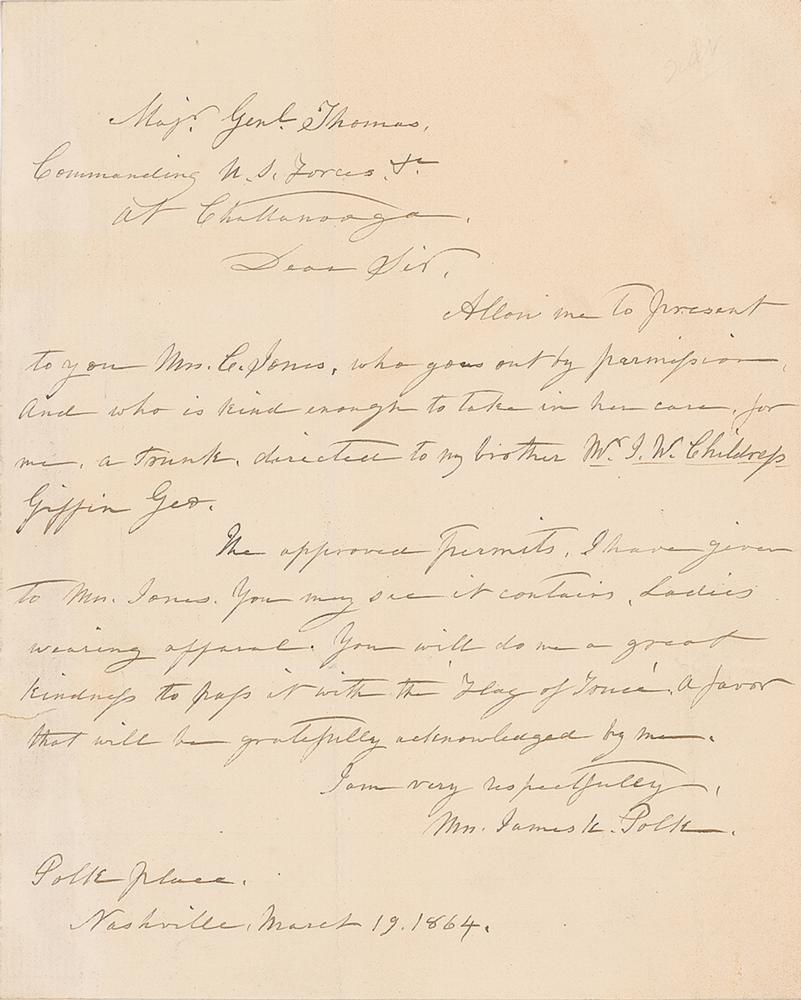 Majr. Genl. Thomas,
Commanding U. S. Forces, &c
at Chattanooga.
Dear Sir,
Allow me to present
to you Mrs. C. Jones, who goes out by permission,
and who is kind enough to take in her care, for
me, a trunk, directed to my brother Mr. J. W. Childress
Giffin Geo.
The approved permits, I have given
to Mrs. Jones. You may see it contains, Ladies
wearing apparal. You will do me a great
kindness to pass it with the 'Flag of Truce'. A favor
that will be gratefully acknowledged by me.
I am very respectfully,
Mrs. James K. Polk.
Polk place.
Nashville, March 19. 1864.